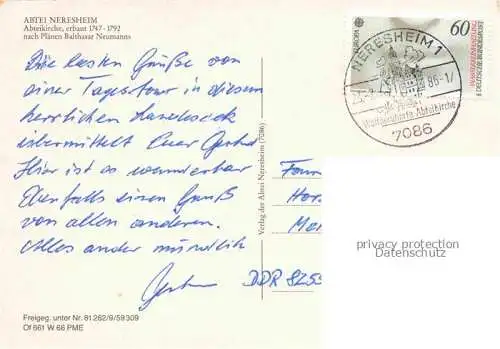 ABTEI NERESHEIM
Abteikirche, erbaut 1747 - 1792
nach Plänen Balthasar Neumanns
Die besten Grüße von
einer Tagestour in diesem
herrlichen
übermittelt Euer
Hier ist es wunderbar
Ebenfalls einen Gruß
von allen anderen.
Alles andre mündlich
Verlag der Abtei Neresheim (7086)
EUROPA
60
DEUTSCHE BUNDESPOST
NERESHEIM 1
86-1/
Weltberühmte Abteikirche
7086
Fam
Hor
DDR 825
privacy protection
Datenschutz
Freigeg. unter Nr. 81 262/9/59 309
Of 661 W 66 PME